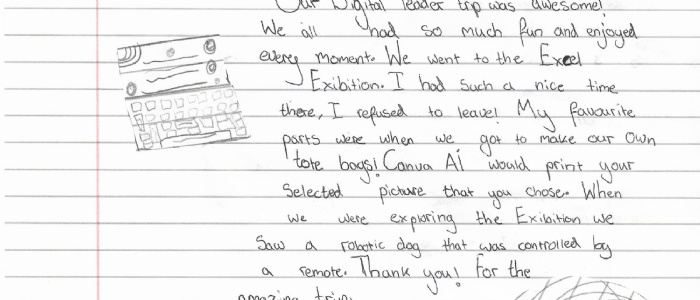 Our Digital leader trip was awesome!
We all had so much fun and enjoyed
every moment. We went to the Excel
Exibition. I had such a nice time
there, I refused to leave! My favourite
parts were when we got to make our Own
tote bags! Canva Ai would print your
Selected picture that you chose. When
we were expluring the Exibition we
Saw a robotic dog that was controlled by
a remote. Thank you! For the
amazing trip.